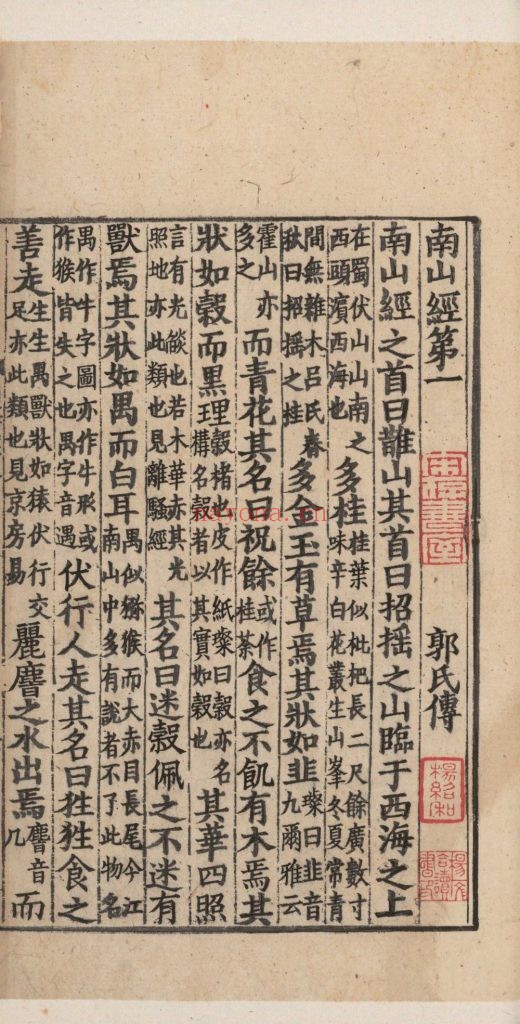 南山經第一 郭氏傳
宋存書室
楊紹和
南山經之首曰䧿山其首曰招摇之山臨于西海之上
在蜀伏山山南之西頭濱西海也多桂桂葉似枇杷長二尺餘廣數寸味辛白花叢生山峯冬夏常青
間無雜木呂氏春秋曰招摇之桂多金玉有草焉其狀如韭璨曰韭音九爾雅云
霍山亦多之而青花其名曰祝餘或作桂荼食之不飢有木焉其
狀如榖而黒理榖楮也皮作紙璨曰榖亦名構名榖者以其實如榖也其華四照
言有光燄也若木華赤其光照地亦此類也見離騷經其名曰迷榖佩之不迷有
獸焉其狀如禺而白耳禺似獼猴而大赤目長尾今江南山中多有說者不了此物名
禺作牛字圖亦作牛形或作猴皆失之也禺字音遇伏行人走其名曰狌狌食之
善走生生禺獸狀如猿伏行交足亦此類也見京房易麗𪊨之水出焉𪊨音几而